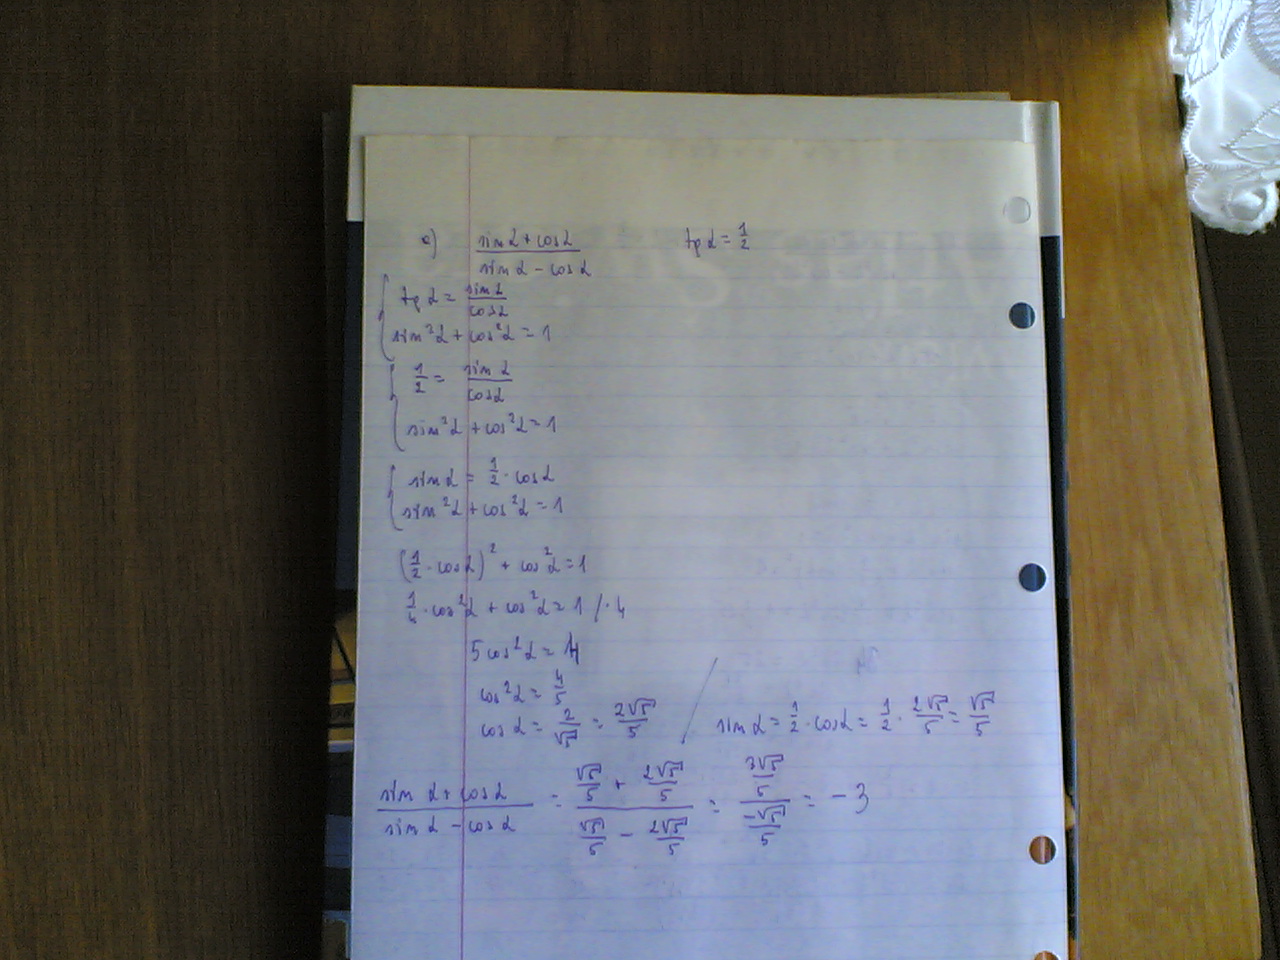 a) \frac{sin α + cos α}{sin α - cos α} tg α = \frac{1}{2}
{ tg α = \frac{sin α}{cos α}
sin²α + cos²α = 1
{ \frac{1}{2} = \frac{sin α}{cos α}
sin²α + cos²α = 1
{ sin α = \frac{1}{2} · cos α
sin²α + cos²α = 1
(\frac{1}{2} · cos α)² + cos²α = 1
\frac{1}{4} · cos²α + cos²α = 1 /· 4
5 cos²α = 4
cos²α = \frac{4}{5}
cos α = \frac{2}{√5} = \frac{2√5}{5} sin α = \frac{1}{2} · cos α = \frac{1}{2} · \frac{2√5}{5} = \frac{√5}{5}
\frac{sin α + cos α}{sin α - cos α} = \frac{\frac{√5}{5} + \frac{2√5}{5}}{\frac{√5}{5} - \frac{2√5}{5}} = \frac{\frac{3√5}{5}}{\frac{-√5}{5}} = -3